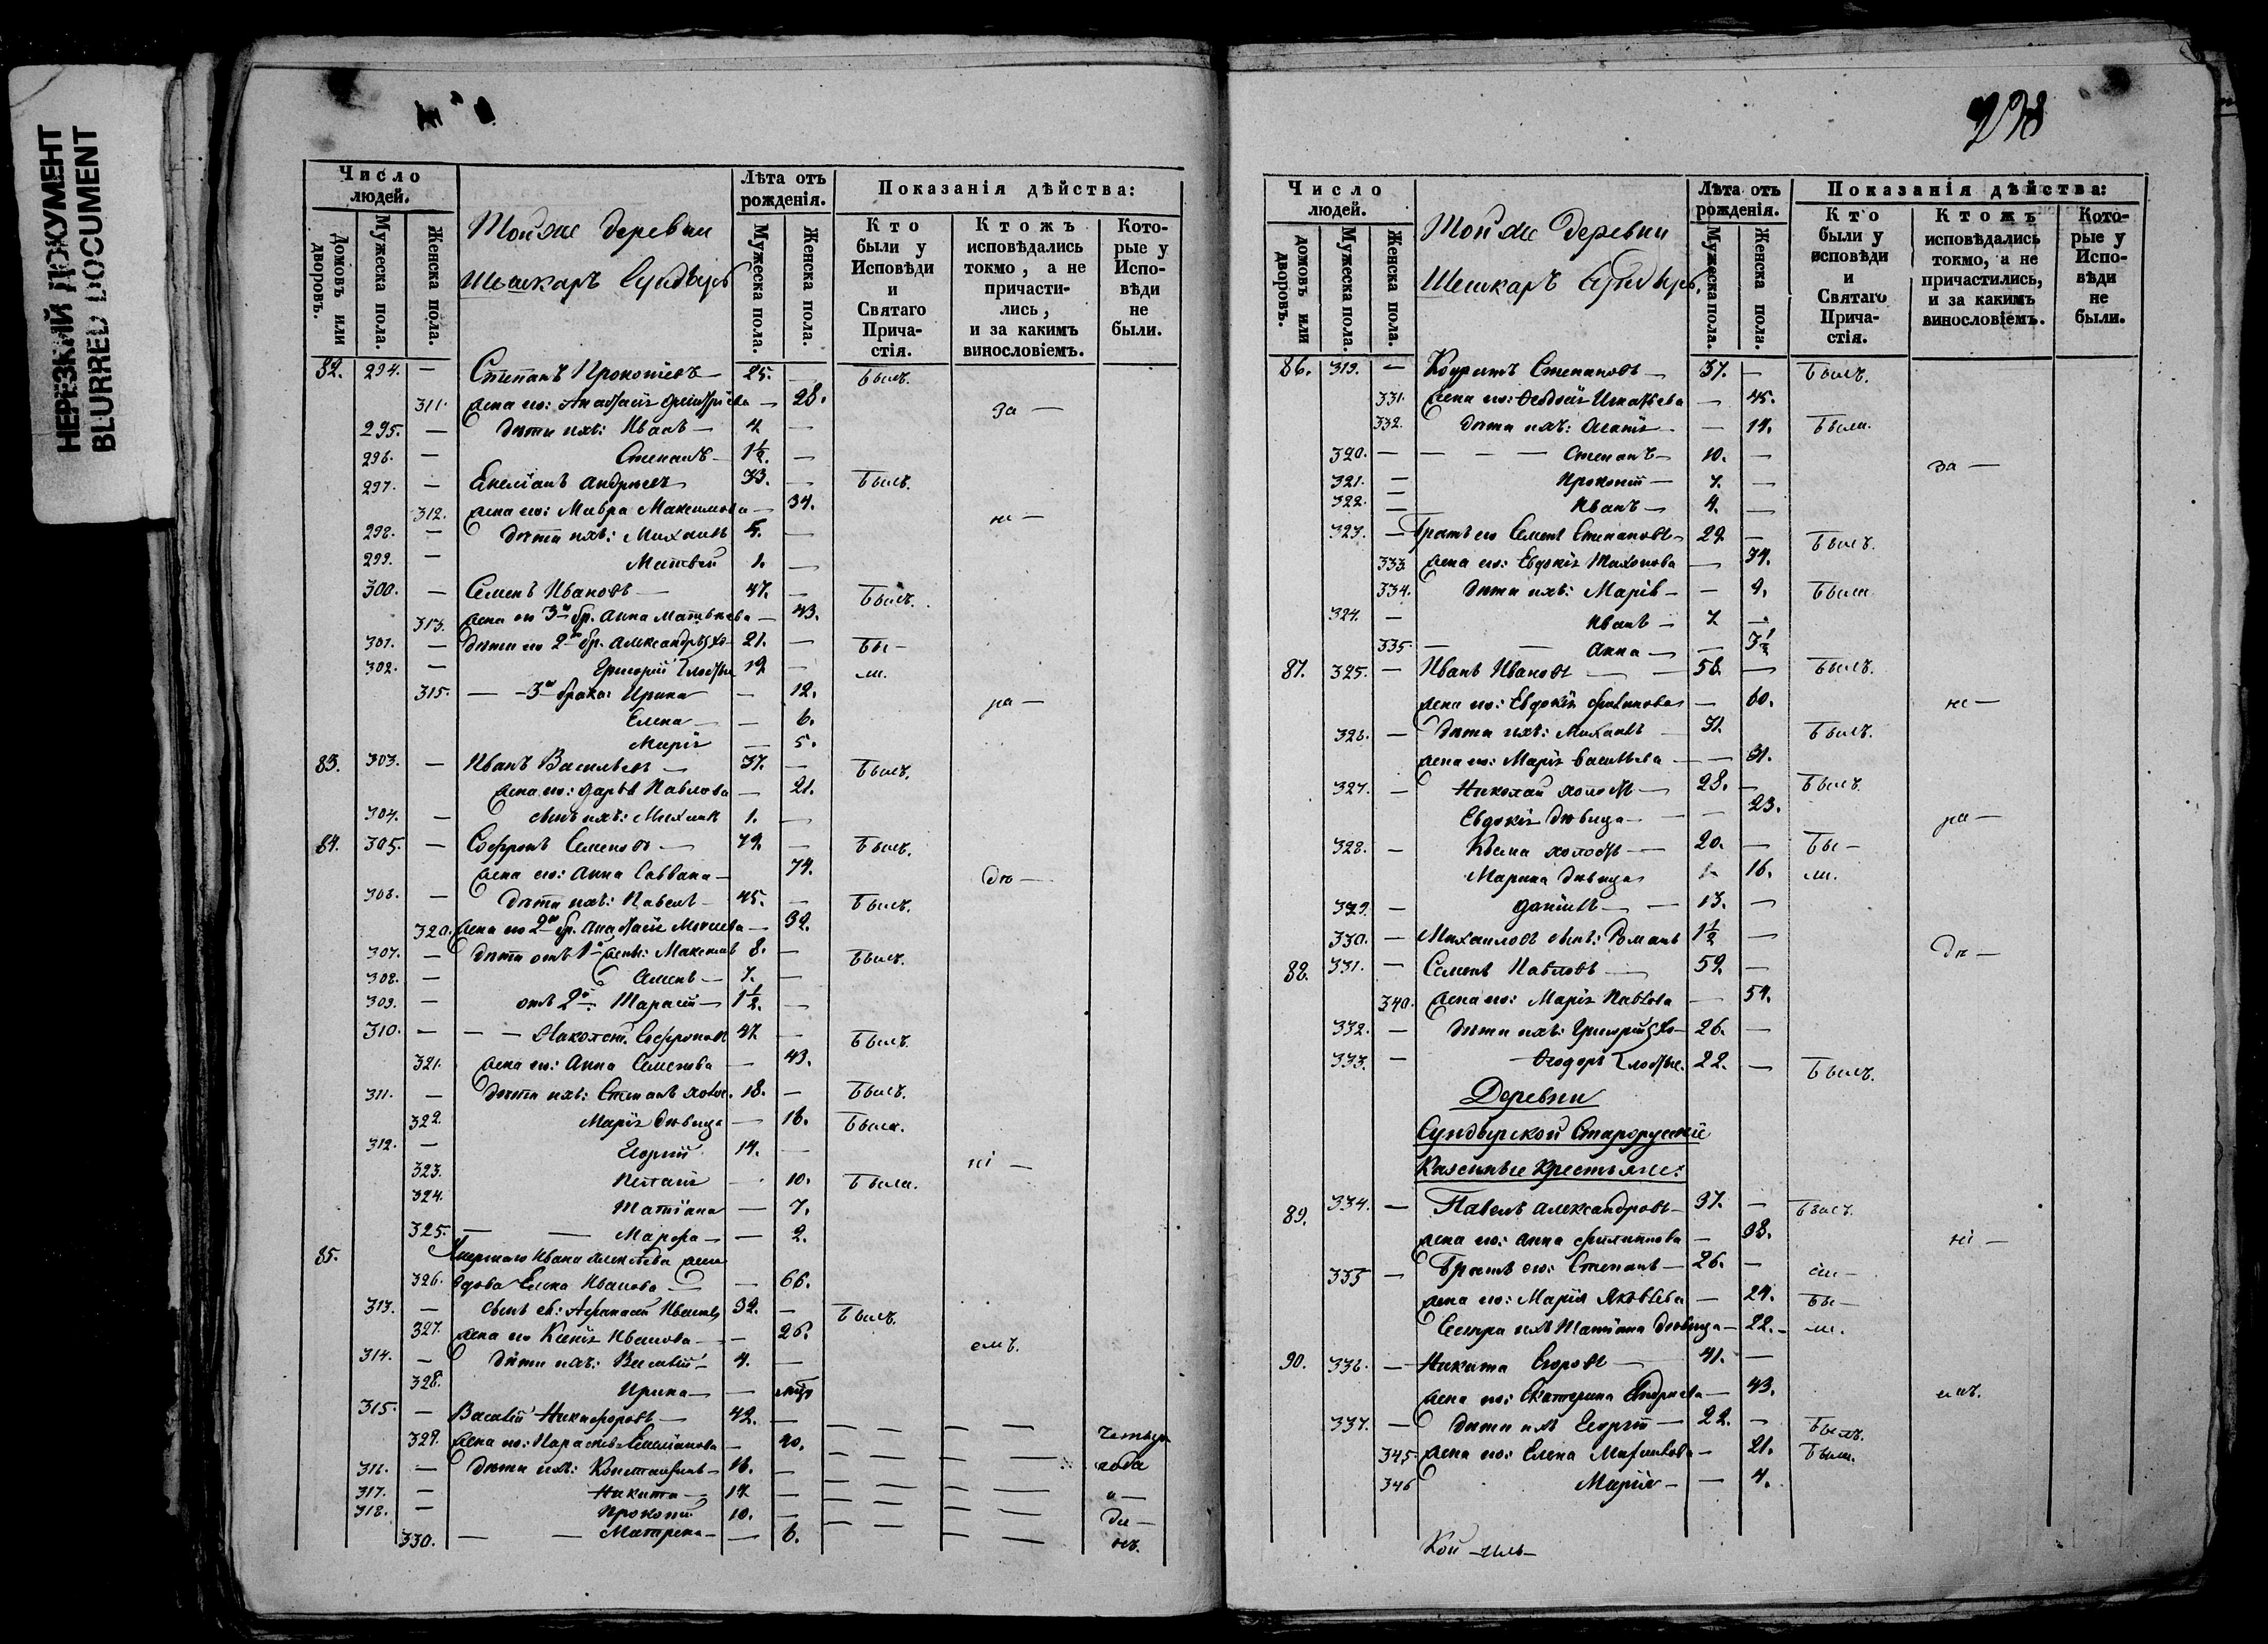 НЕРЕЗКИЙ ДОКУМЕНТ
BLURRED DOCUMENT
Число людей.
Домовъ или дворовъ.
Мужеска пола.
Женска пола.
Тойже деревни
Шешкаръ Сундырь
Лѣта отъ рожденія.
Мужеска пола.
Женска пола.
Показанія дѣйства:
Кто были у Исповѣди и Святаго Причастія.
Ктожъ исповѣдались токмо, а не причастились, и за какимъ винословіемъ.
Которые у Исповѣди не были.
82. 294. — Степанъ Прокопіевъ — 25. — былъ.
311. жена его: Анастасія Димитріева — 28. за —
295. — дѣти ихъ: Иванъ — 4 —
296. — Степанъ — 1½. —
297. — Емеліанъ Андреевъ 33. — былъ.
312. жена его: Мавра Максимова — 34. не —
298. — дѣти ихъ: Михаилъ 5. —
299. — Матвей 1. —
300. — Семенъ Ивановъ — 47. — былъ.
313. жена его 3го бр. Анна Матвеева — 43.
301. — дѣти его 2го бр. Александръ хо- 21. — бы —
302. — Григорій лостые 19 — ли.
315. — — 3го брака: Ирина — 12. ра —
Елена — — 6.
Марія — 5.
83. 303. — Иванъ Васильевъ — 37. — былъ.
жена его: Дарья Павлова — 21.
304. — сынъ ихъ: Михаилъ 1. —
84. 305. — Софронъ Семеновъ — 79. — былъ.
жена его: Анна Саввина — 74. дѣ —
306. — дѣти ихъ: Павелъ — 45. — былъ.
320. жена его 2го бр. Анастасія Моисеева — 32.
307. — дѣти отъ 1й жены: Максимъ 8. — былъ.
308. — Семенъ — 7. —
309. — отъ 2й: Тарасій — 1½. —
310. — — — Николай Софроновъ 47. — былъ.
321. жена его: Анна Семенова — 43.
311. — дѣти ихъ: Степанъ холос. 18. — былъ.
322. Марія дѣвица — 16. была.
312. — Георгій 14. —
323. Пелагія — 10. была. ні —
324. Татіана — 7.
325. — — Марфа — — 2.
85. Умершаго Ивана Алексѣева жена
326. вдова Елена Иванова — — 66.
313. — сынъ ея: Афанасій Ивановъ 32. — былъ.
327. жена его Ксенія Иванова — — 26. емъ.
314. — дѣти ихъ: Василій — 4. —
328. Ирина — —
315. — Василій Никифоровъ — 42. — — — — — четыре
329. жена его: Параскева Емеліанова — 40. — — — —
316. — дѣти ихъ: Константинъ — 16. — — — — — года
317. — Никита — 12 — — — — — и —
318. — Прокопій 10. — — — — — ди —
330. — — Матрена — — 6. — — нъ.
238
Число людей.
домовъ или дворовъ.
Мужеска пола.
Женска пола.
Тойже деревни
Шешкаръ Сундырь.
Лѣта отъ рожденія.
Мужеска пола.
Женска пола.
Показанія дѣйства:
Кто были у исповѣди и Святаго Причастія.
Ктожъ исповѣдались токмо, а не причастились, и за какимъ винословіемъ.
Которые у Исповѣди не были.
86. 319. — Кодратъ Степановъ — 37. — былъ.
331. жена его: Феодосія Игнатьева — 45.
332. дѣти ихъ: Агапія — — 14. была.
320. — — — — Степанъ — 10. — за —
321. — Прокопій — 7. —
322. — Иванъ — 4. —
323. — Братъ его Семенъ Степановъ — 29 — былъ.
333. жена его: Евдокія Тихонова — 34.
334. дѣти ихъ: Марія — — 9. была.
324. — Иванъ — 7 —
335. — Анна — — 3½
87. 325. — Иванъ Ивановъ — 58. — былъ.
жена его: Евдокія — 60. не —
326. — дѣти ихъ: Михаилъ 31. былъ.
жена его: Марія Васильева — — 31.
327. — Николай холост. — 28. — былъ.
Евдокія дѣвица — — — 23. ра —
328. — Козма холостъ — 20. — бы —
Марина дѣвица — 16. ли.
329. — Даніилъ — — 13. —
330. — Михаиловъ сынъ: Романъ 1½ — дѣ —
88. 331. — Семенъ Павловъ — 59. —
340. жена его: Марія Павлова — 54.
332. — дѣти ихъ: Григорій хо- 26. —
333. — Феодоръ лостые. 22. — былъ.
Деревни
Сундырской Старорусскіе
Казенные крестьяне:
89. 334. — Павелъ Александровъ — 37. — былъ.
жена его: Анна Филиппова — 38. ні —
335 — братъ его: Степанъ — 26. —
жена его: Марія Яковлева — 24. бы —
Сестра ихъ Татіана дѣвица — 22. — ли.
90. 336. — Никита Егоровъ — 41. —
жена его: Екатерина Андреева — 43. емъ.
337. — дѣти ихъ Георгій — 22. — былъ.
345. жена его: Елена Михаилова — 21. была.
346 Марія — — 4.